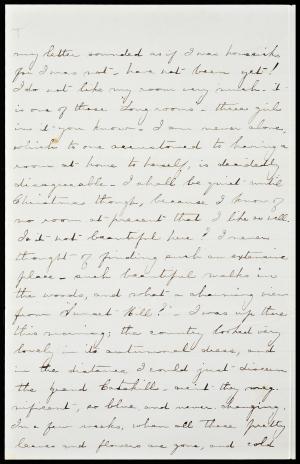 my letter sounded as if I was homesick
for I was not - have not been yet!
I do not like my room very much. it
is one of those long rooms - three girls
in it you know - I am never alone,
which to one accustomed to having a
room at home to herself, is decidedly
disagreeable. I shall be quiet until
Christmas though, because I know of
no room at present that I like as well.
Is it not beautiful here? I never
thought of finding such an extensive
place - such beautiful walks in
the woods, and what a charming view
from "Sunset Hill"? - I was up there
this morning; the country looked very
lovely in its autumnal dress, and
in the distance I could just discern
the grand Catskills - ain't they mag-
nificent, so blue, and never changing.
In a few weeks, when all these pretty
leaves and flowers are gone, and cold